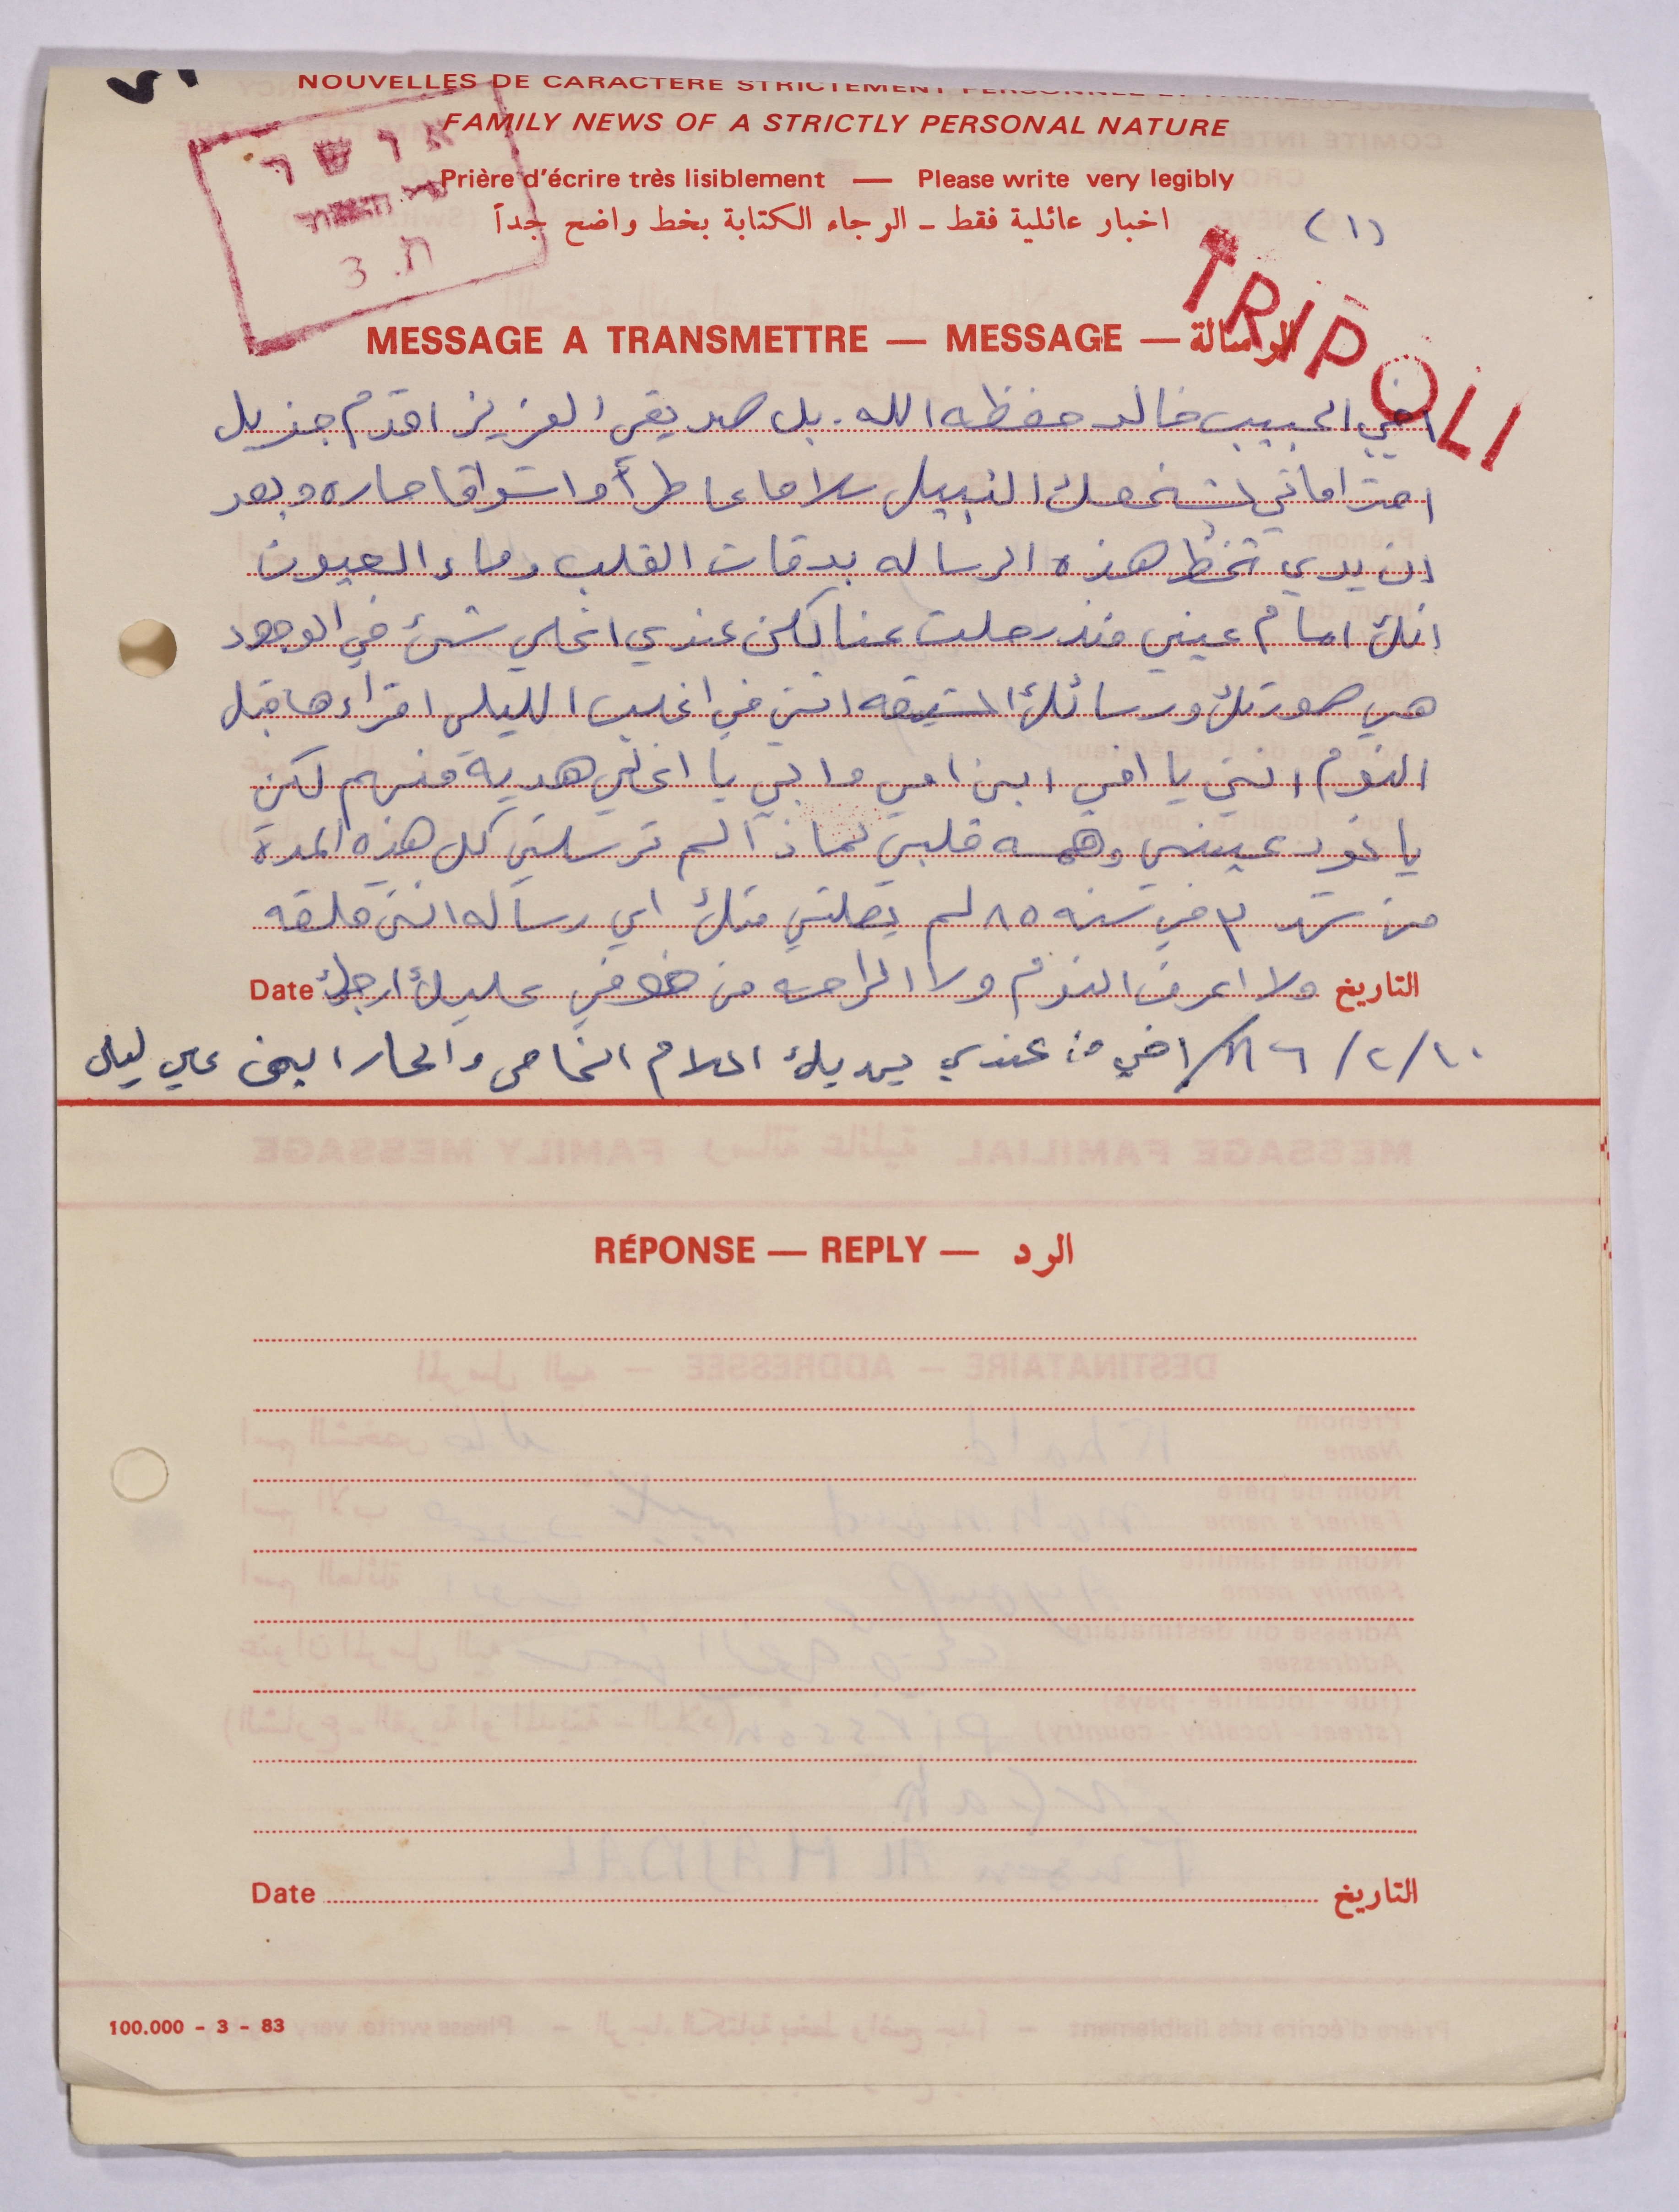 NOUVELLES DE CARACTERE STRICTEMENT PERSONNEL ET FAMILIAL
FAMILY NEWS OF A STRICTLY PERSONAL NATURE
Prière d'écrire très lisiblement — Please write very legibly
اخبار عائلية فقط ـ الرجاء الكتابة بخط واضح جداً
(١)
אושר
ת. 3
TRIPOLI
MESSAGE A TRANSMETTRE — MESSAGE — الرسالة
اخي الحبيب خالد حفظه الله. بل صديقي العزيز اقدم جزيل
احتراماتي لشخصك النبيل سلاما عاطرأ واشواقا حاره وبعد
ان يدي تخط هذه الرساله بدقات القلب وماء العيون
انك امام عيني منذ رحلت عنا لكن عندي اغلى شئ في الوجود
هي صورتك ورسائلك الشيقه انني في اغلب الليل اقراءها قبل
النوم انني يا اخي ابن امي وابي يا اغلى هدية منهم لكن
يا نور عيني وهمسه قلبي لماذا لم ترسلي كل هذه المدة
من شهر ٣ في سنه ٨٥ لم يصلني منك اي رساله انني قلقه
التاريخ ولا اعرف النوم ولا الراحه من خوفي عليك ارجوك Date
١٠/٢/٨٦ اخي من عندي يهديك السلام الخاص والحار ابني علي ليلى
RÉPONSE — REPLY — الرد
Date التاريخ
100.000 - 3 - 83